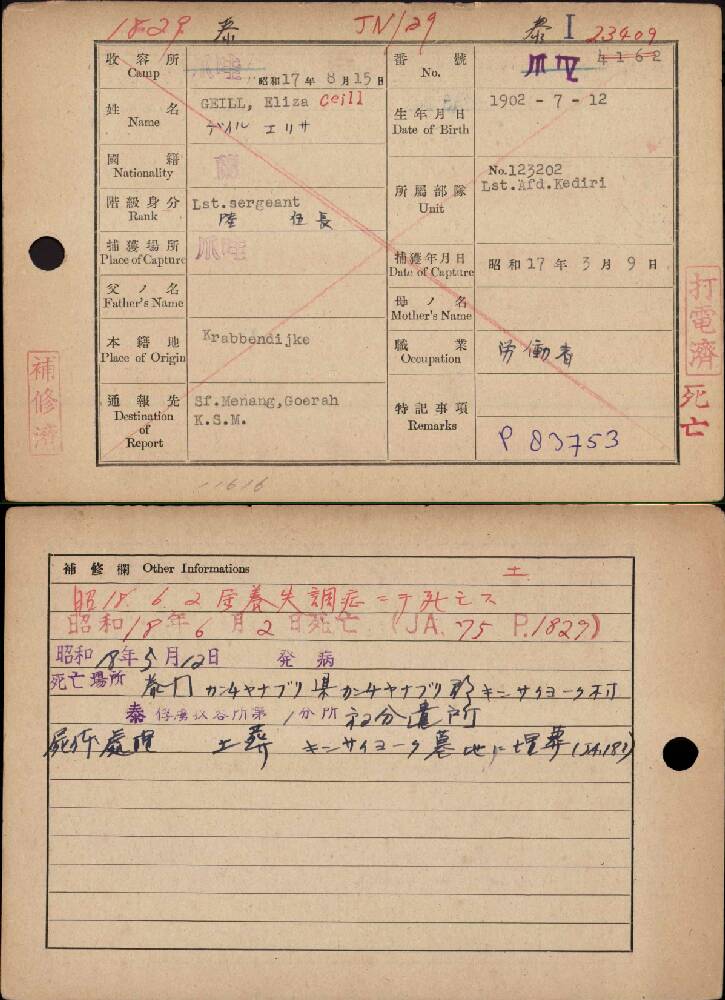 18-29 泰 JN/29 泰 I 23409
收容所 Camp 爪哇 昭和17年8月15日
番號 No. 爪 IV 4162
姓名 Name GEILL, Eliza Ceill
デイル エリサ
生年月日 Date of Birth 1902 - 7 - 12
國籍 Nationality 蘭
階級身分 Rank Lst.sergeant
陸 伍長
所属部隊 Unit No.123202
Lst.Afd.Kediri
捕獲場所 Place of Capture 爪哇
捕獲年月日 Date of Capture 昭和17年3月9日
父ノ名 Father's Name
母ノ名 Mother's Name
本籍地 Place of Origin Krabbendijke
職業 Occupation 労働者
通報先 Destination of Report Sf.Menang,Goerah
K.S.M.
特記事項 Remarks
P 83753
打電済
死亡
補修済
11616
補修欄 Other Informations 土
昭18.6.2 栄養失調症ニテ死亡ス
昭和18年6月2日死亡 (JA.75 P.1829)
昭和18年5月12日 発病
死亡場所 泰国カンチヤナブリ県カンチヤナブリ郡キンサイヨーク村
泰俘虜収容所第1分所 分遣所
屍体處理 土葬 キンサイヨーク墓地に埋葬